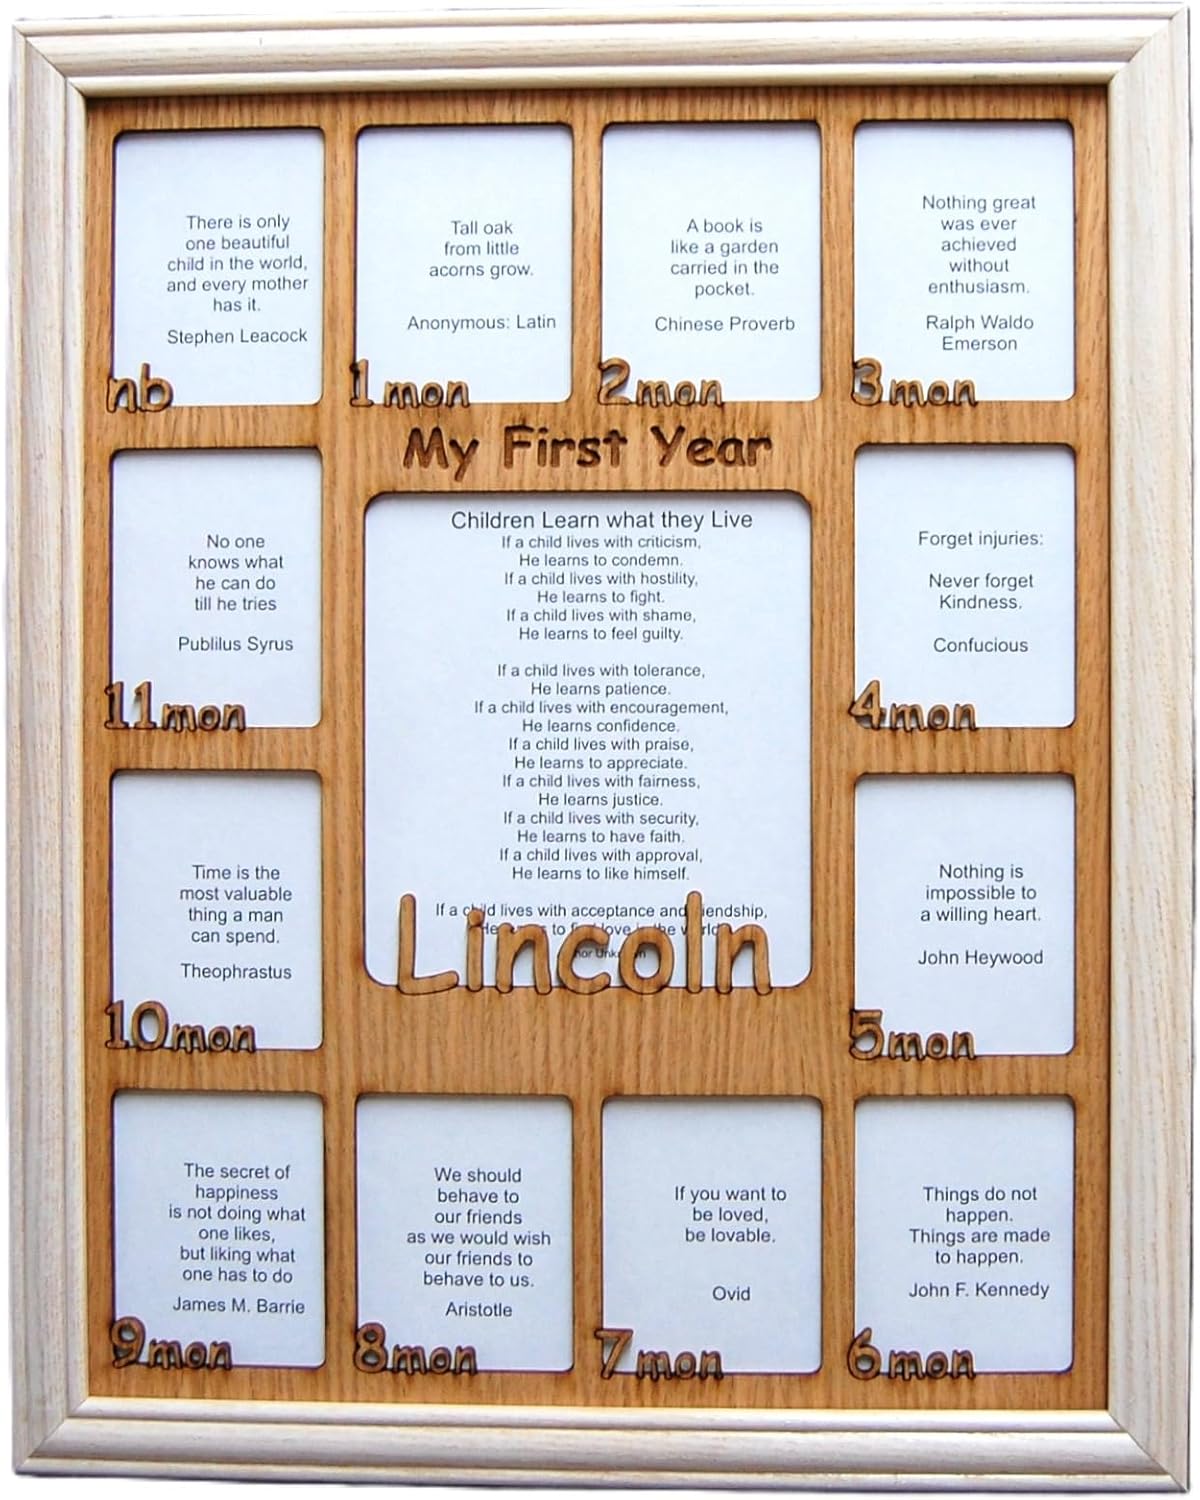 There is only
one beautiful
child in the world,
and every mother
has it.
Stephen Leacock
nb
Tall oak
from little
acorns grow.
Anonymous: Latin
1mon
A book is
like a garden
carried in the
pocket.
Chinese Proverb
2mon
Nothing great
was ever
achieved
without
enthusiasm.
Ralph Waldo
Emerson
3mon
My First Year
No one
knows what
he can do
till he tries
Publilus Syrus
11mon
Children Learn what they Live
If a child lives with criticism,
He learns to condemn.
If a child lives with hostility,
He learns to fight.
If a child lives with shame,
He learns to feel guilty.
If a child lives with tolerance,
He learns patience.
If a child lives with encouragement,
He learns confidence.
If a child lives with praise,
He learns to appreciate.
If a child lives with fairness,
He learns justice.
If a child lives with security,
He learns to have faith.
If a child lives with approval,
He learns to like himself.
If a child lives with acceptance and
to love the
Lincoln
Forget injuries:
Never forget
Kindness.
Confucious
4mon
Time is the
most valuable
thing a man
can spend.
Theophrastus
10mon
Nothing is
impossible to
a willing heart.
John Heywood
5mon
The secret of
happiness
is not doing what
one likes,
but liking what
one has to do
James M. Barrie
9mon
We should
behave to
our friends
as we would wish
our friends to
behave to us.
Aristotle
8mon
If you want to
be loved,
be lovable.
Ovid
7mon
Things do not
happen.
Things are made
to happen.
John F. Kennedy
6mon